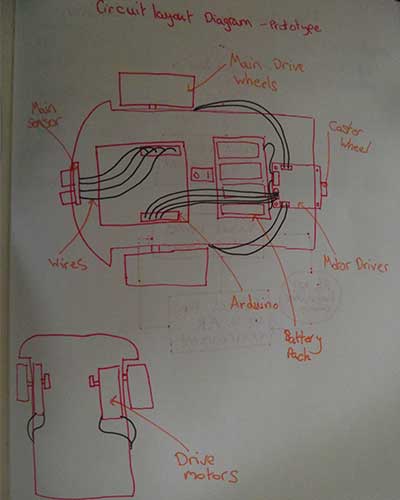 Circuit layout Diagram - Prototype
Main Drive
Wheels
Main
Sensor
Castor
Wheel
0 1
Wires
Motor Driver
Arduino
Battery
Pack
Drive
motors